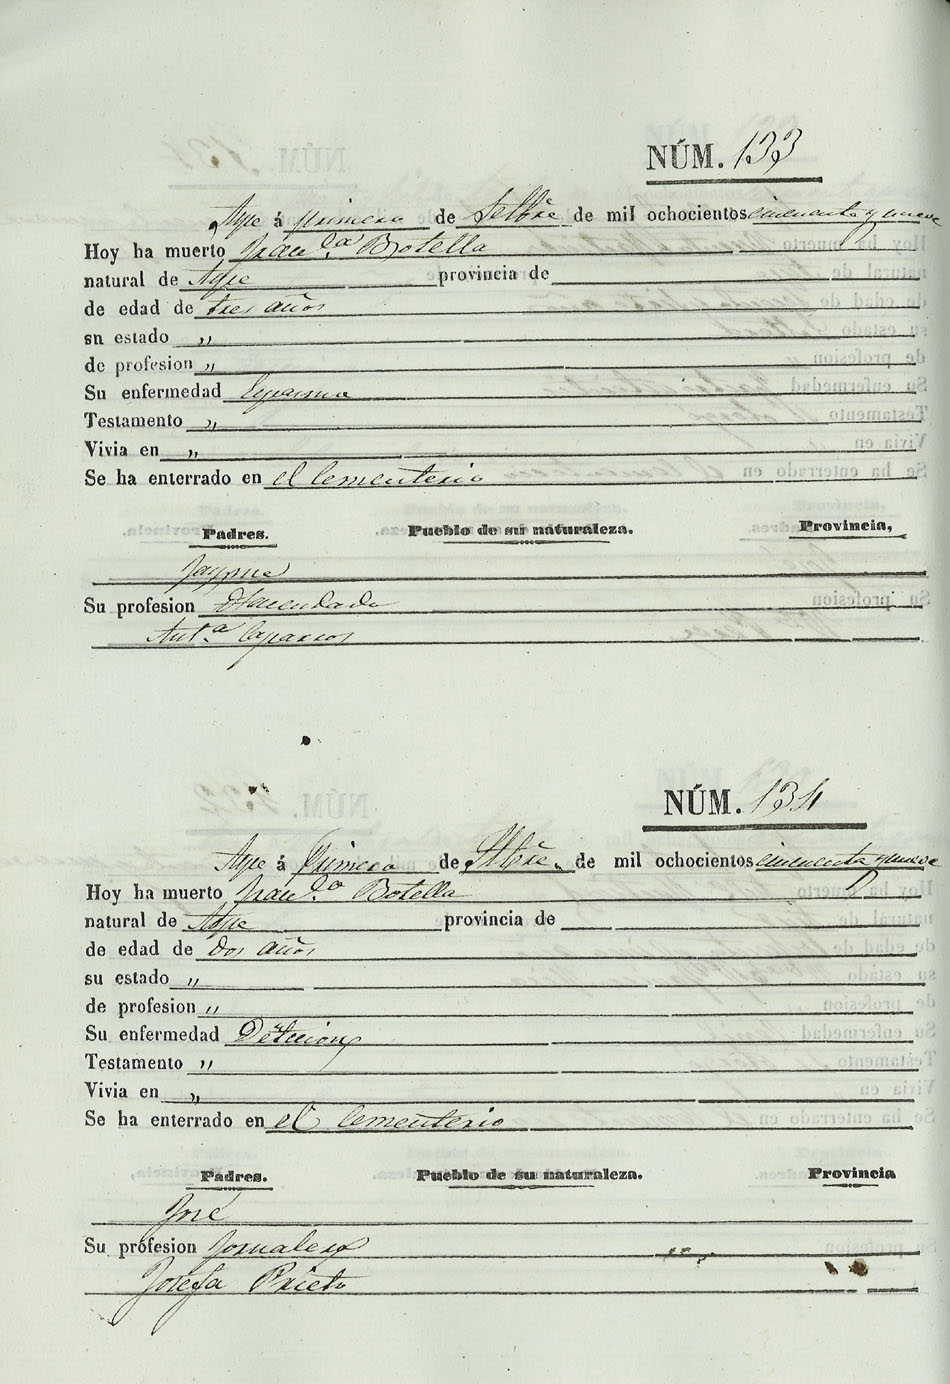 NÚM. 133
Aspe á primero de Setbre de mil ochocientos cincuenta y nueve
Hoy ha muerto Franca. Botella
natural de Aspe provincia de
de edad de tres años
sn estado „
de profesion „
Su enfermedad Espasmo
Testamento „
Vivia en „
Se ha enterrado en el Cementerio
Padres. Pueblo de su naturaleza. Provincia,
Jayme
Su profesion Hacendado
Anta Caparros
NÚM. 134
Aspe á Primero de Stbre. de mil ochocientos cincuenta y nueve
Hoy ha muerto Franco. Botella
natural de Aspe provincia de
de edad de dos años
su estado „
de profesion „
Su enfermedad
Testamento „
Vivia en „
Se ha enterrado en el Cementerio
Padres. Pueblo de su naturaleza. Provincia
José
Su profesion Jornalero
Josefa Prieto